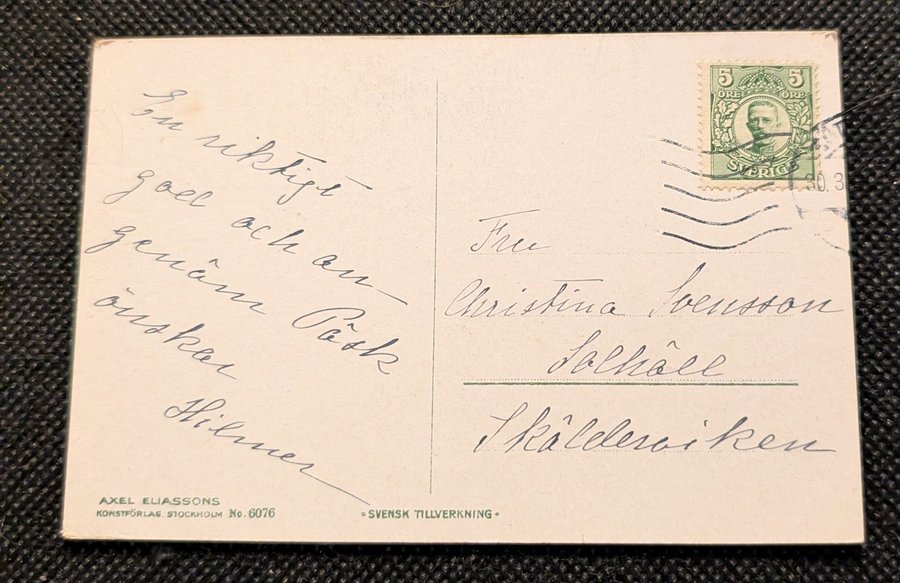 En riktigt
god och an-
genäm Påsk
önskar
Hilmer
5 5
ÖRE ÖRE
SVERIGE
30.3
Fru
Christina Svensson
Solhäll
Skälderviken
AXEL ELIASSONS
KONSTFÖRLAG. STOCKHOLM No. 6076
• SVENSK TILLVERKNING •